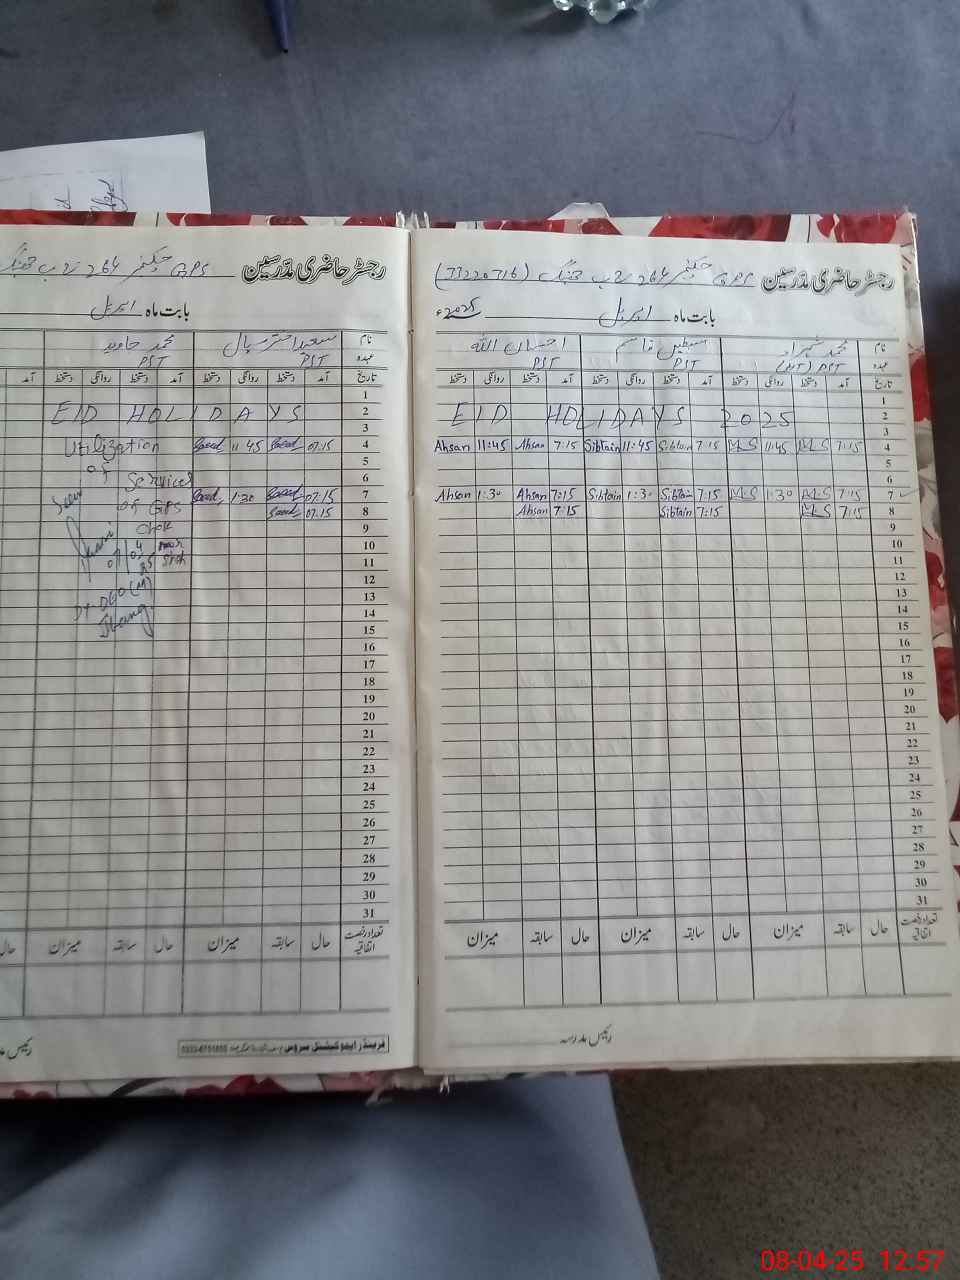 رجسٹر حاضری مدرسین GPS چک نمبر 264 ج ب جھنگ (33220716)
بابت ماہ اپریل 2025ء
نام محمد شہزاد سبطین قاسم احسان اللہ
عہدہ PST (HT) PST PST
تاریخ آمد دستخط روانگی دستخط آمد دستخط روانگی دستخط آمد دستخط روانگی دستخط
1
EID HOLIDAYS 2025 2
3
Ahsan 11:45 Ahsan 7:15 Sibtain 11:45 Sibtain 7:15 M-S 11:45 M-S 7:15 4
5
6
Ahsan 1:30 Ahsan 7:15 Sibtain 1:30 Sibtain 7:15 M-S 1:30 M-S 7:15 7
Ahsan 7:15 Sibtain 7:15 M-S 7:15 8
9
10
11
12
13
14
15
16
17
18
19
20
21
22
23
24
25
26
27
28
29
30
31
تعداد رخصت اتفاقیہ حال سابقہ میزان حال سابقہ میزان حال سابقہ میزان
رئیس مدرسہ
رجسٹر حاضری مدرسین GPS چک نمبر 264 ج ب جھنگ
بابت ماہ اپریل
نام سعید اختر سیال محمد جاوید
عہدہ PST PST
تاریخ آمد دستخط روانگی دستخط آمد دستخط روانگی دستخط آمد
1
EID HOLIDAYS 2
3
Utilization Saeed 11 45 Saeed 07:15 4
of 5
Services 6
Seen of GPS Saeed 1:30 Saeed 07:15 7
Saeed 07:15 8
Chak 9
10
11
12
Dy. DEO (M) 13
Jhang 14
15
16
17
18
19
20
21
22
23
24
25
26
27
28
29
30
31
تعداد رخصت اتفاقیہ حال سابقہ میزان حال سابقہ میزان حال
فرینڈز ایجوکیشنل سروس
08-04-25 12:57